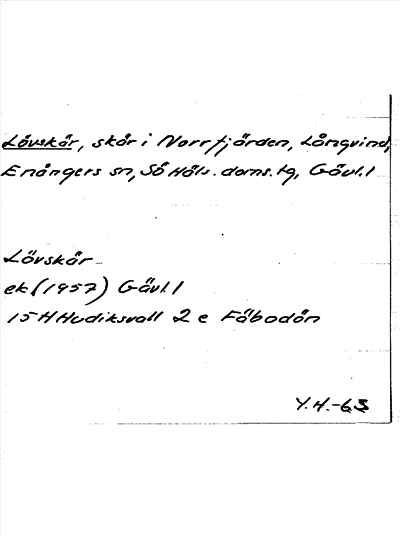 Lövskär, skär i Norrfjärden, Långvind,
Enångers sn, Sö Häls. doms. tg, Gävl. l
Lövskär
ek (1957) Gävl. l
15 H Hudiksvall 2 e Fäbodön
Y.H.-63